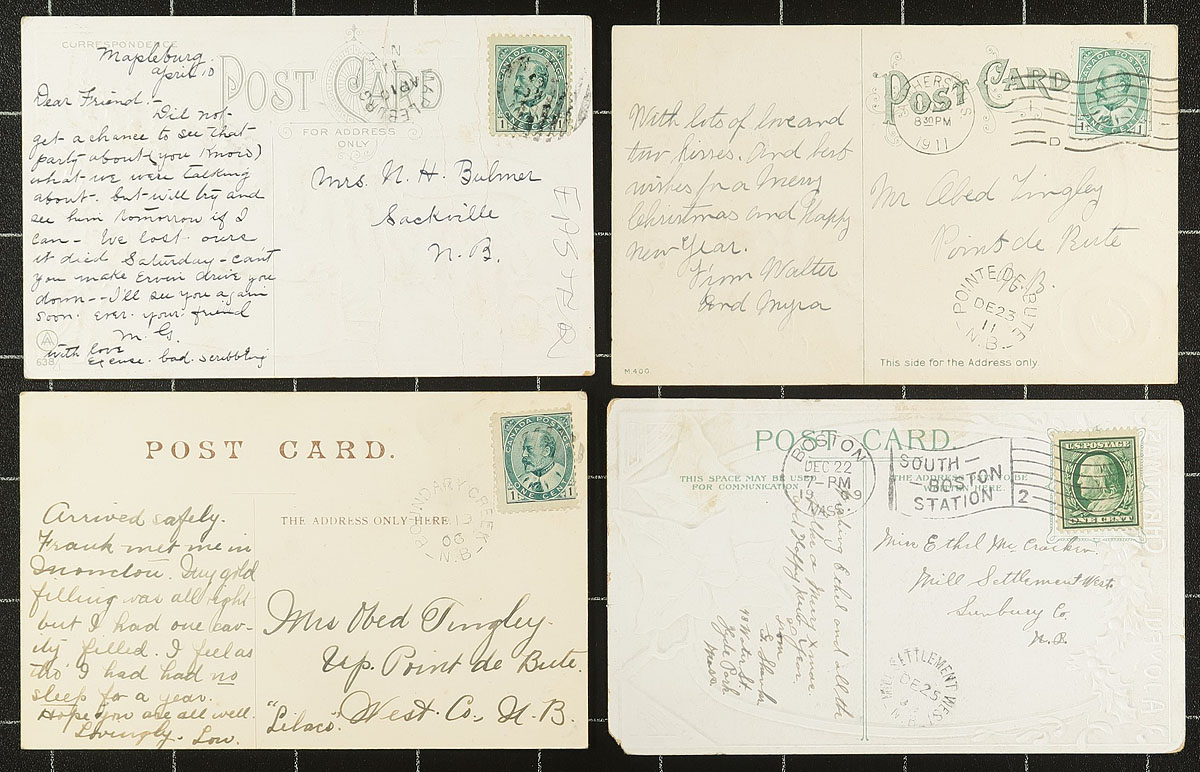 CORRESPONDENCE
POST CARD
FOR ADDRESS
ONLY
Mapleburg.
april 10
Dear Friend:-
Did not
get a chance to see that
party about (you know)
what we were talking
about - but will try and
see him tomorrow if I
can - We lost ours
it died Saturday - can't
you make Ervin drive you
down -- I'll see you again
soon. ever. your friend
M. G.
with love
excuse. bad. scribbling
A
638
AP 10
CANADA POSTAGE
1
Mrs. N. H. Bulmer
Sackville
N. B.
POST CARD
8 30 PM
1911
CANADA POSTAGE
1 1
With lots of love and
two kisses. And best
wishes for a Merry
Christmas and Happy
new Year.
From Walter
and Myra
Mr Abed Tingley
Point de Bute
N.B.
POINTE DE BUTE
DE 23
11
N.B.
This side for the Address only
M.400.
POST CARD.
THE ADDRESS ONLY HERE
CANADA POSTAGE
1 ONE CENT 1
06
N.B.
Arrived safely.
Frank met me in
Moncton. My gold
filling was all right
but I had one cav-
ity filled. I feel as
tho' I had had no
sleep for a year.
Hope you are all well.
Lovingly- Lou.
Mrs Obed Tingley.
Up. Point de Bute.
"Lilacs" West. Co., N. B.
POST CARD.
THIS SPACE MAY BE USED
FOR COMMUNICATION
THE ADDRESS TO BE
HERE.
BOSTON
DEC 22
7 - PM
1909
MASS.
SOUTH -
- BOSTON
STATION
2
U.S. POSTAGE
ONE CENT
Wishing Ethel and all the
folks a Merry Xmas
and Happy New Year.
48 Water St
Hyde Park
Mass.
Miss Ethel Mc Crackin.
Mill Settlement West.
Sunbury Co.
N. B.
SETTLEMENT WEST
DE 25